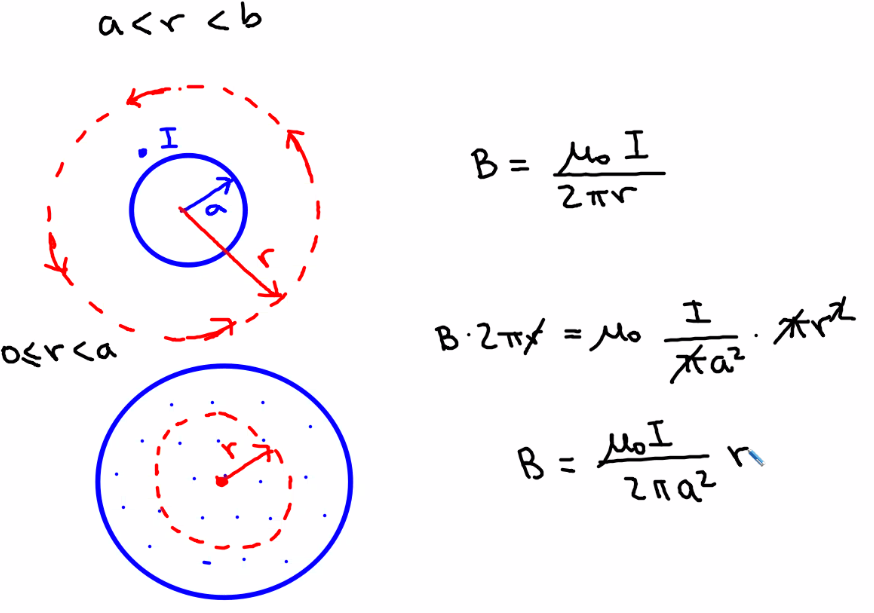 a < r < b
I
a
r
B = μ₀ I / 2πr
0 ≤ r < a
B · 2πr = μ₀ I / πa² · πr²
r
B = μ₀ I / 2πa² r